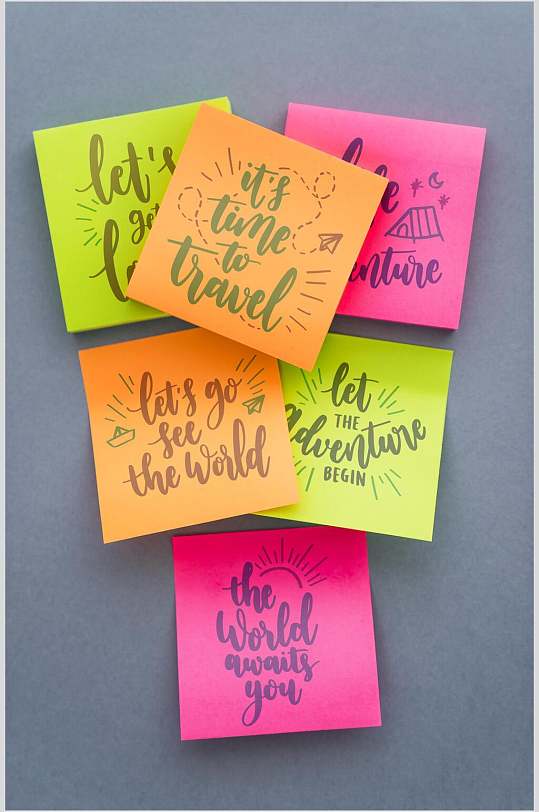 let's
get
it's
time
to
travel
let's go
see
the world
let
THE
adventure
BEGIN
the
world
awaits
you